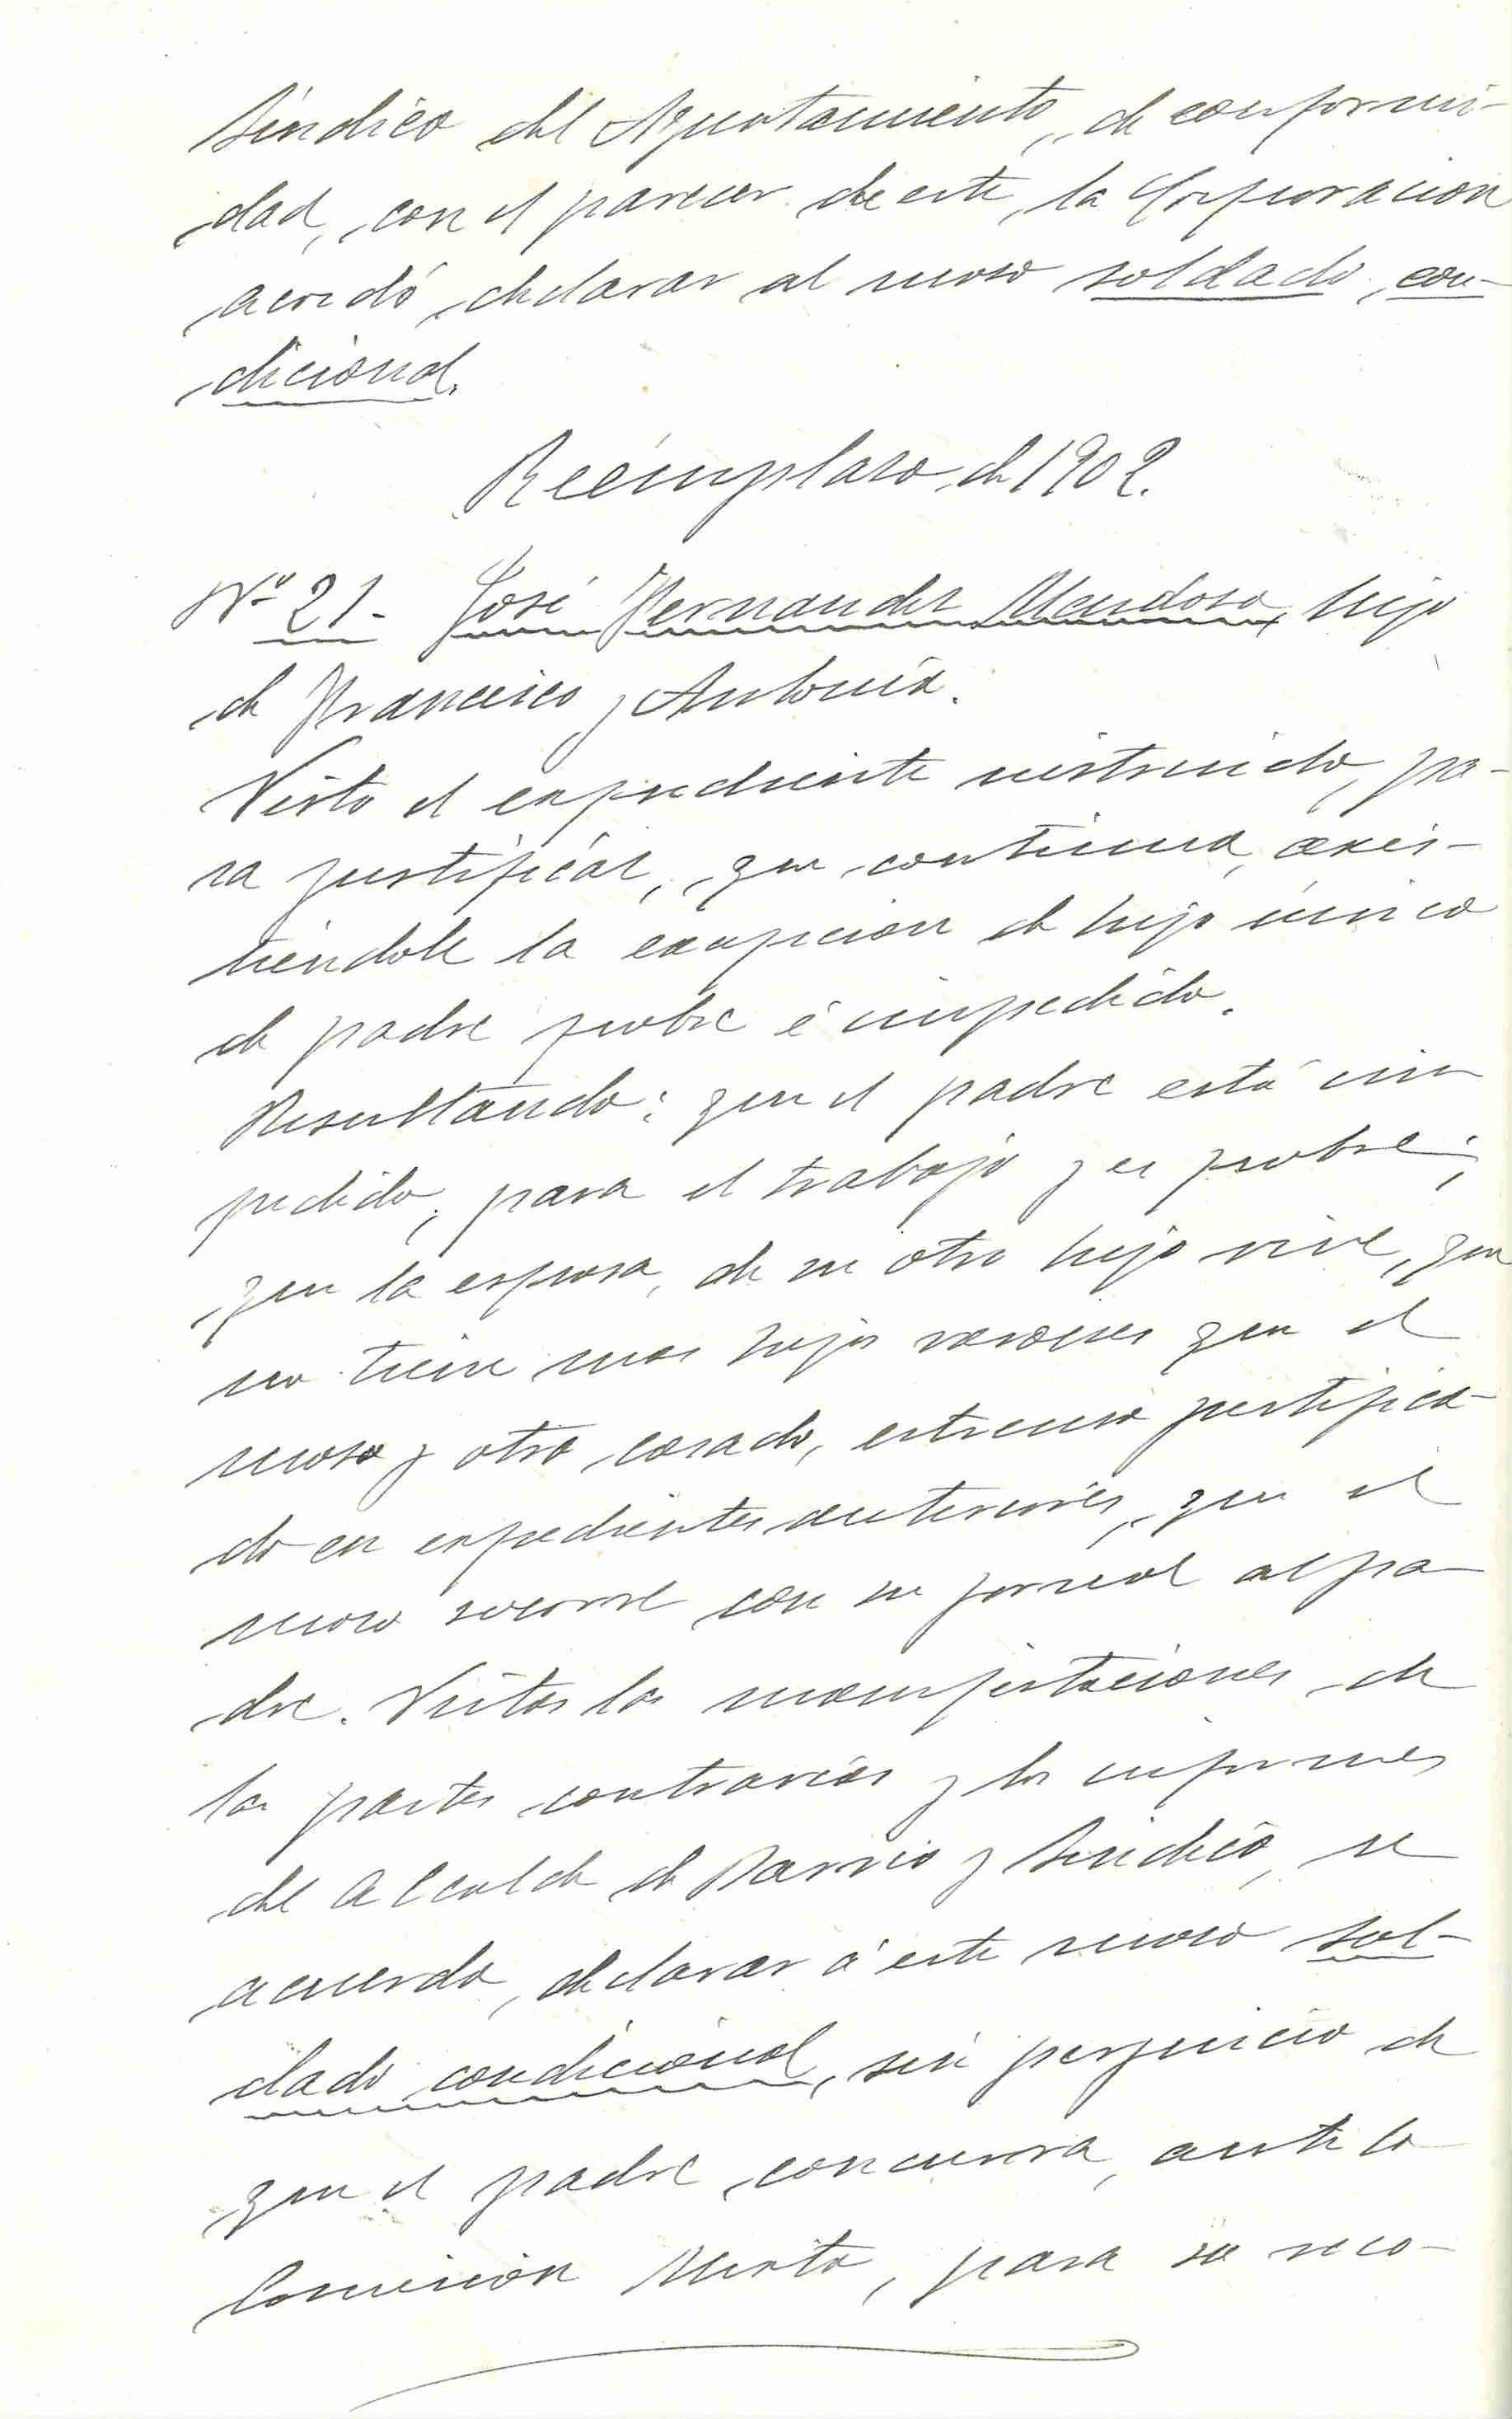 Síndico del Ayuntamiento, de conformi-
dad, con el parecer de este, la Corporacion
acordó declarar al moso soldado con-
dicional.
Reemplaso de 1902.
Nº 21 - José Hernandes Mendosa, hijo
de Francisco y Antonia.
Visto el expediente instruido, pa-
ra justificar, que continua, axis-
tiendole la exepcion de hijo único
de padre pobre é impedido.
Resultando: que el padre está im
pedido, para el trabajo y es pobre;
que la esposa, de su otro hijo vive, que
no tiene mas hijos varones que el
moso y otro casado, estremo justifica-
do en expedientes anteriores, que el
moso socorre con su jornal al pa
dre. Vistas las manifestaciones de
las partes contrarias y los informes
del Alcalde de Barrio y Síndico, se
acuerda, declarar á este moso sol-
dado condicional, sin perjuicio de
que el padre concurra, ante la
Comision Mixta, para su reco-